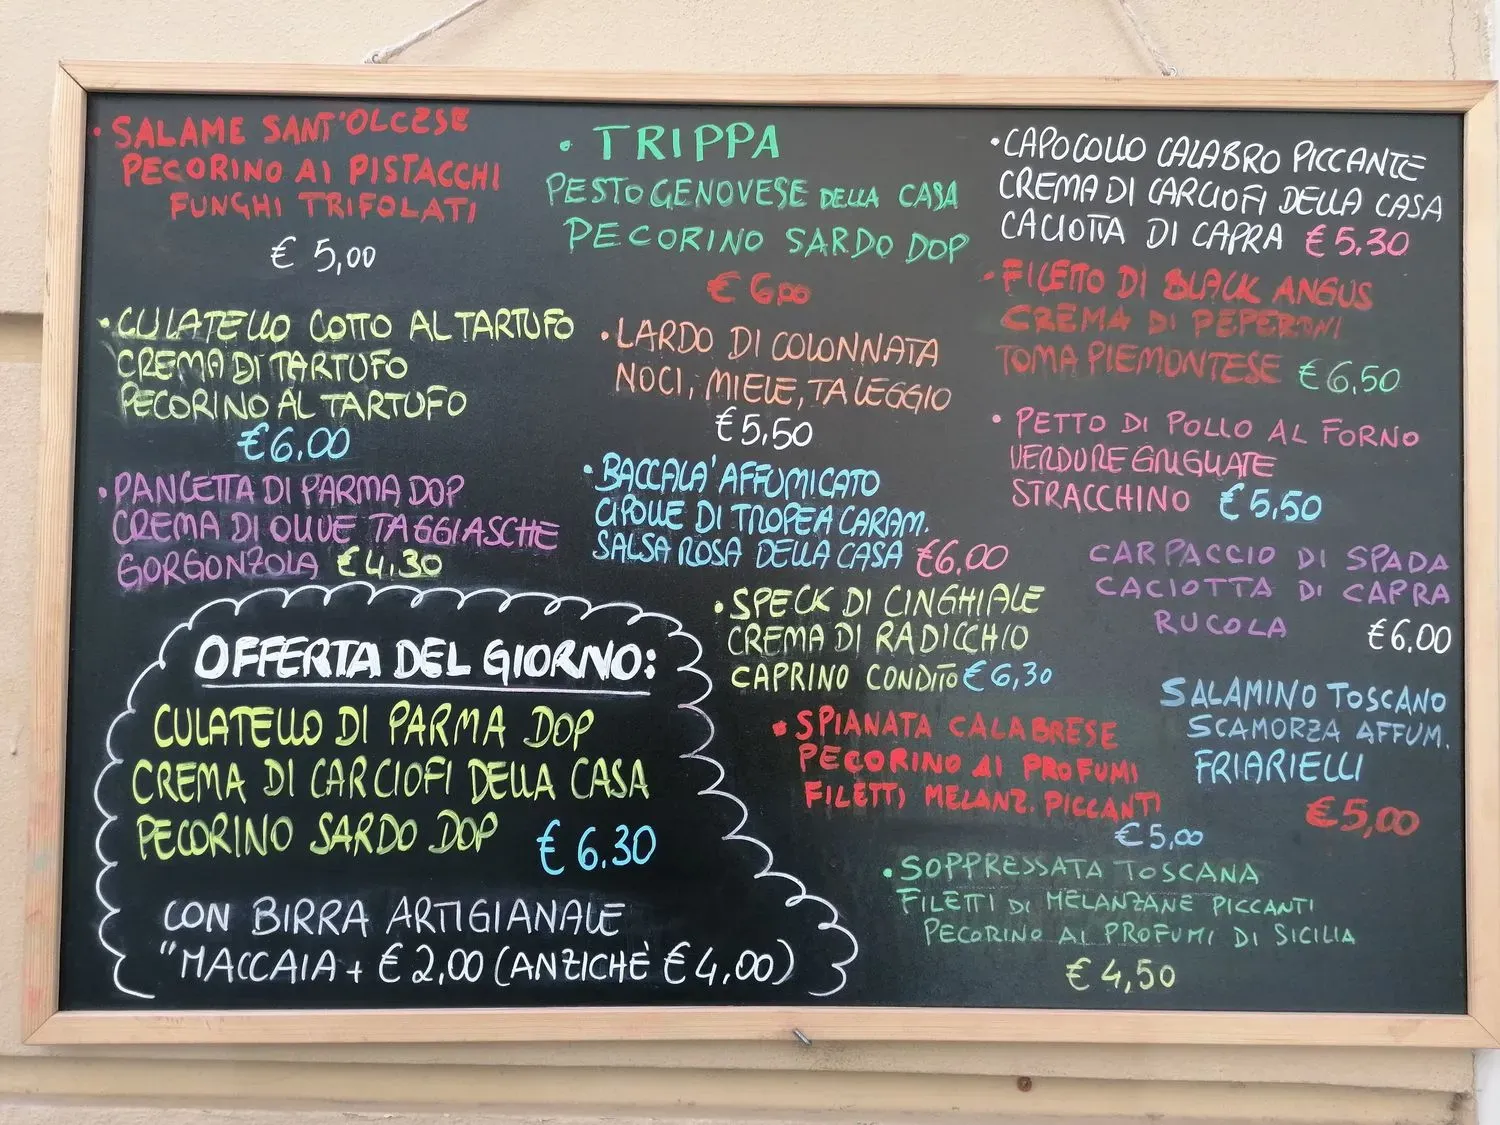 • SALAME SANT'OLCESE
PECORINO AI PISTACCHI
FUNGHI TRIFOLATI
€ 5,00
• CULATELLO COTTO AL TARTUFO
CREMA DI TARTUFO
PECORINO AL TARTUFO
€6.00
• PANCETTA DI PARMA DOP
CREMA DI OLIVE TAGGIASCHE
GORGONZOLA €4.30
OFFERTA DEL GIORNO:
CULATELLO DI PARMA DOP
CREMA DI CARCIOFI DELLA CASA
PECORINO SARDO DOP € 6.30
CON BIRRA ARTIGIANALE
"MACCAIA + € 2,00 (ANZICHÈ € 4,00)
• TRIPPA
PESTO GENOVESE DELLA CASA
PECORINO SARDO DOP
€ 6,00
• LARDO DI COLONNATA
NOCI, MIELE, TALEGGIO
€5,50
• BACCALA' AFFUMICATO
CIPOLLE DI TROPEA CARAM.
SALSA ROSA DELLA CASA €6.00
• SPECK DI CINGHIALE
CREMA DI RADICCHIO
CAPRINO CONDITO € 6,30
• SPIANATA CALABRESE
PECORINO AI PROFUMI
FILETTI MELANZ. PICCANTI
€ 5,00
• SOPPRESSATA TOSCANA
FILETTI DI MELANZANE PICCANTI
PECORINO AI PROFUMI DI SICILIA
€ 4,50
• CAPOCOLLO CALABRO PICCANTE
CREMA DI CARCIOFI DELLA CASA
CACIOTTA DI CAPRA €5.30
• FILETTO DI BLACK ANGUS
CREMA DI PEPERONI
TOMA PIEMONTESE €6,50
• PETTO DI POLLO AL FORNO
VERDURE GRIGLIATE
STRACCHINO €5,50
CARPACCIO DI SPADA
CACIOTTA DI CAPRA
RUCOLA €6.00
SALAMINO TOSCANO
SCAMORZA AFFUM.
FRIARIELLI
€5,00